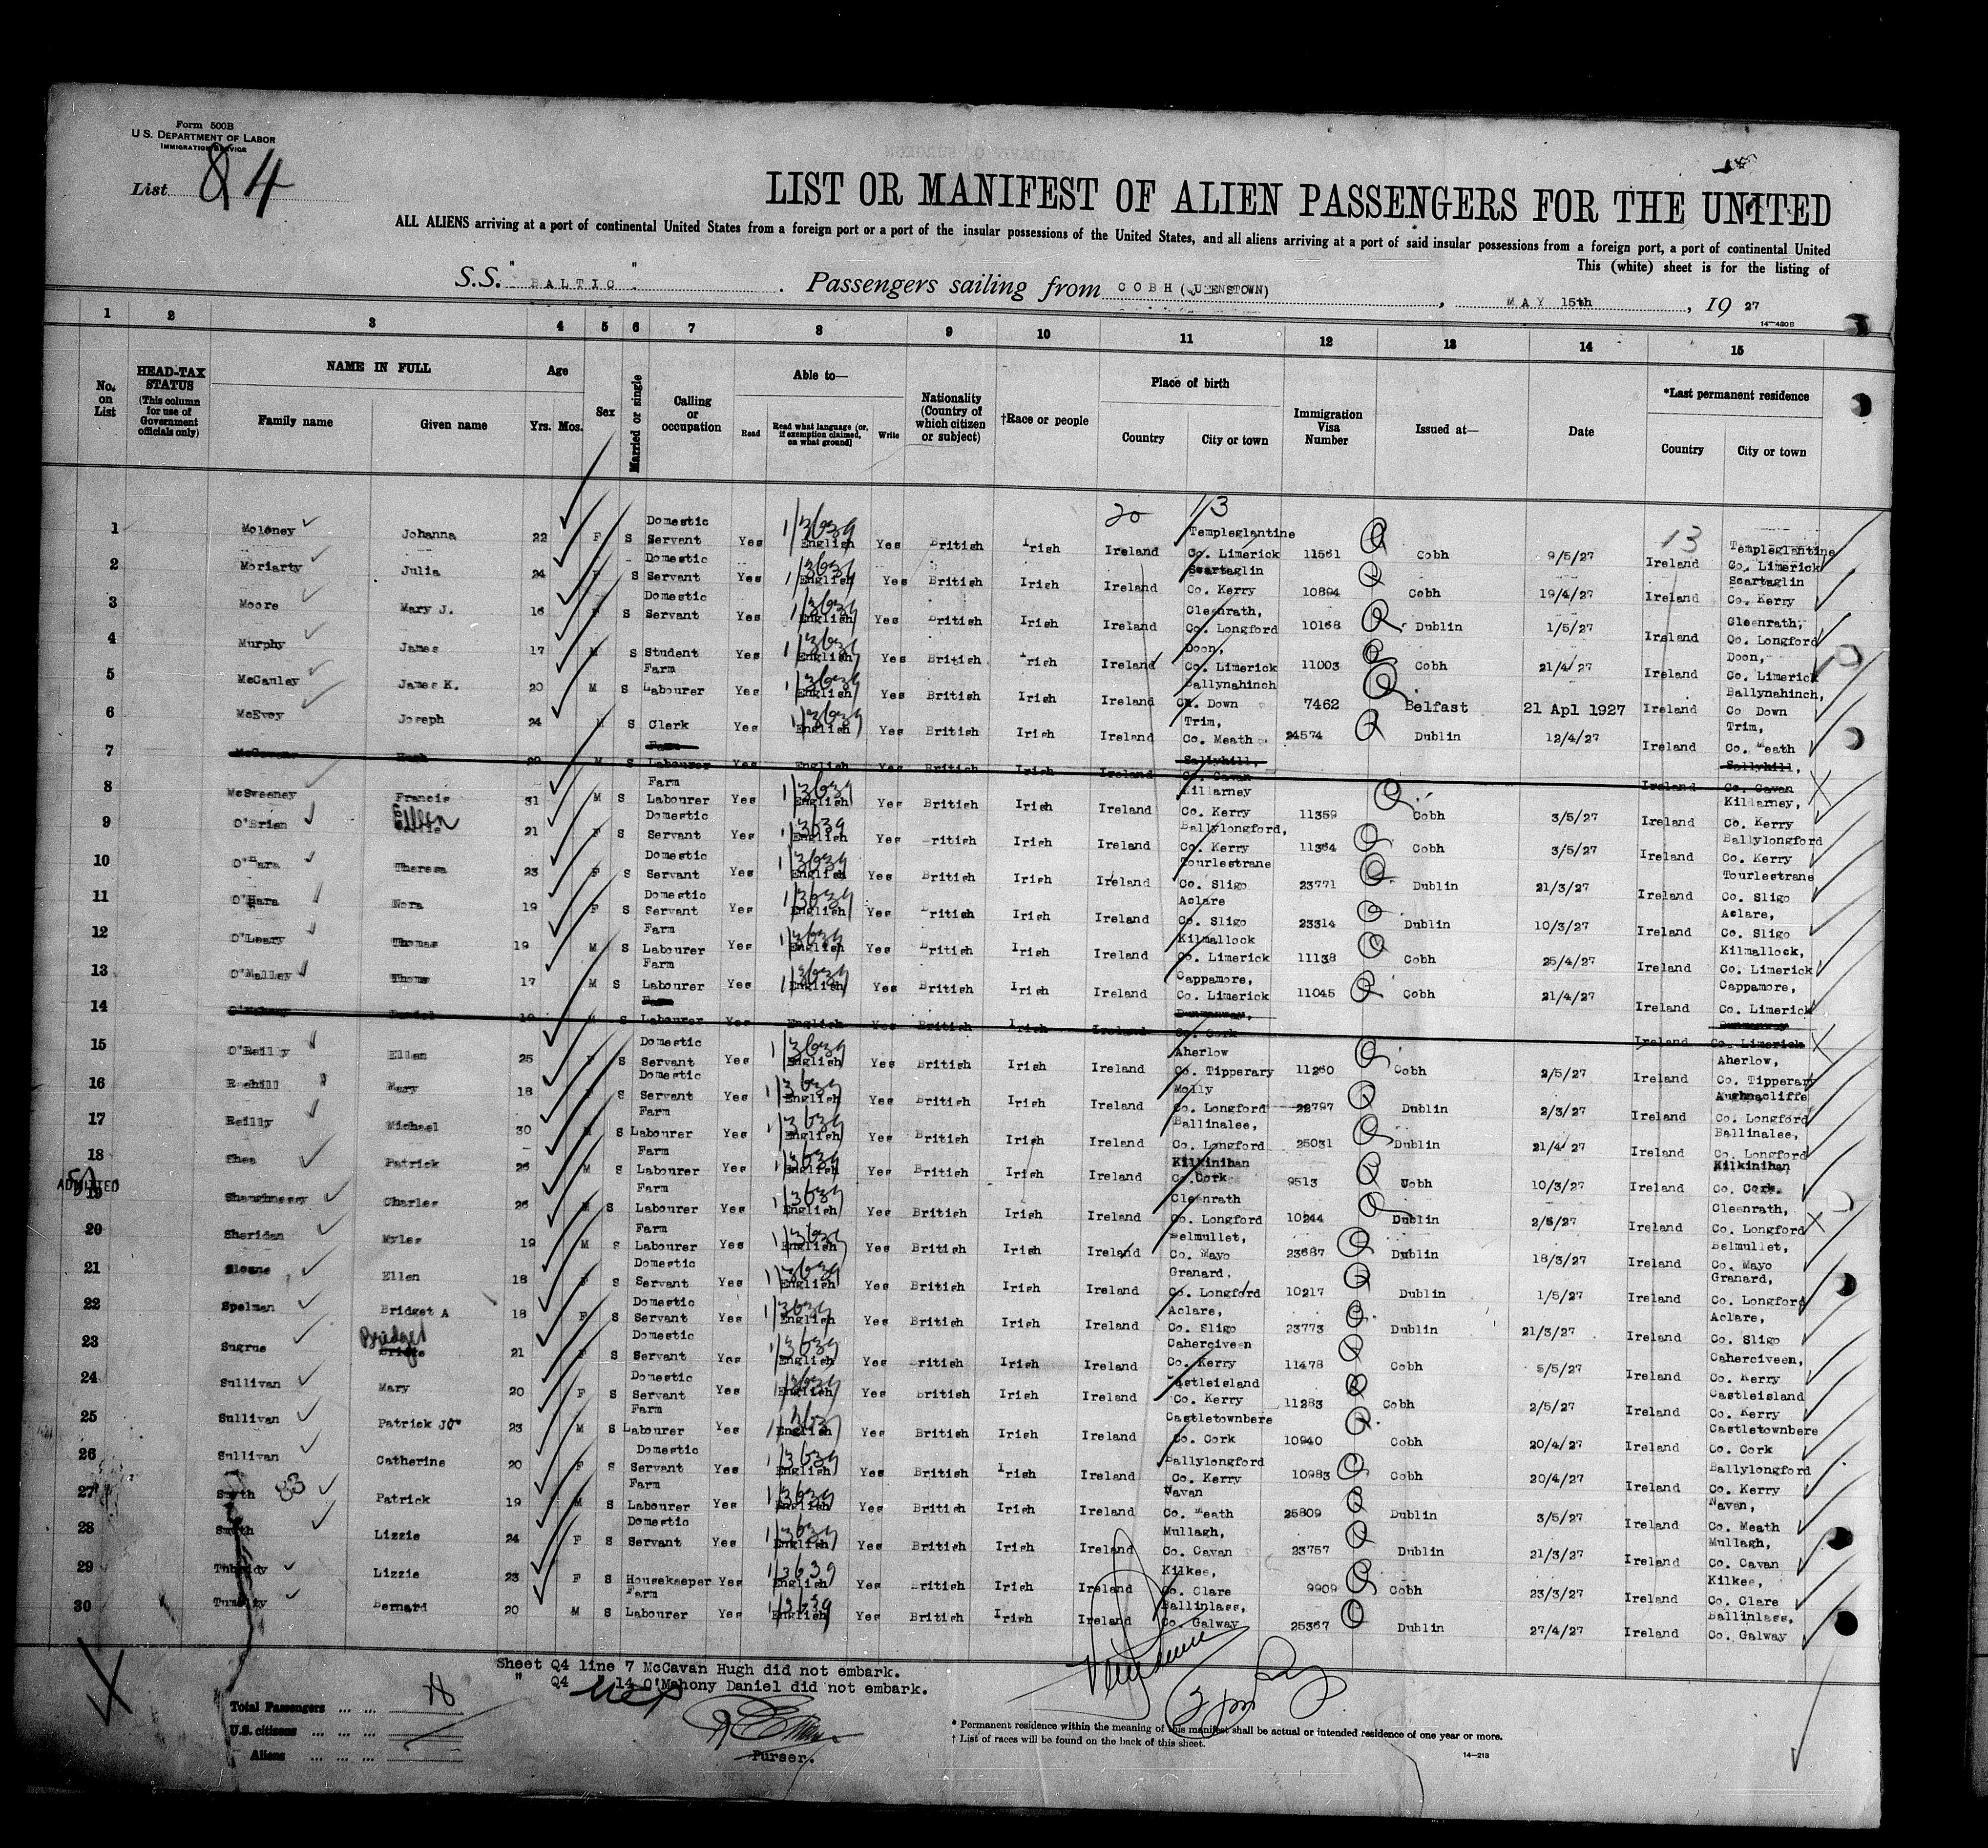 Form 500B
U.S. DEPARTMENT OF LABOR
IMMIGRATION SERVICE
List 4
LIST OR MANIFEST OF ALIEN PASSENGERS FOR THE UNITED
ALL ALIENS arriving at a port of continental United States from a foreign port or a port of the insular possessions of the United States, and all aliens arriving at a port of said insular possessions from a foreign port, a port of continental United
This (white) sheet is for the listing of
S.S. "BALTIC". Passengers sailing from COBH (QUEENSTOWN), MAY 15th, 19 27
14-480B
1 2 3 4 5 6 7 8 9 10 11 12 13 14 15
No. on List
HEAD-TAX STATUS (This column for use of Government officials only)
NAME IN FULL
Family name Given name
Age
Yrs. Mos.
Sex
Married or single
Calling or occupation
Able to—
Read Read what language (or, if exemption claimed, on what ground) Write
Nationality (Country of which citizen or subject)
†Race or people
Place of birth
Country City or town
Immigration Visa Number
Issued at—
Date
*Last permanent residence
Country City or town
20 13 13
1 Moloney Johanna 22 F S Domestic Servant Yes 1/3639 English Yes British Irish Ireland Templeglantine Co. Limerick 11561 Cobh 9/5/27 Ireland Templeglantine Co. Limerick
2 Moriarty Julia 24 F S Domestic Servant Yes 1/3639 English Yes British Irish Ireland Scartaglin Co. Kerry 10894 Cobh 19/4/27 Ireland Scartaglin Co. Kerry
3 Moore Mary J. 16 F S Domestic Servant Yes 1/3639 English Yes British Irish Ireland Cleenrath, Co. Longford 10168 Dublin 1/5/27 Ireland Cleenrath, Co. Longford
4 Murphy James 17 M S Student Yes 1/3639 English Yes British Irish Ireland Doon, Co. Limerick 11003 Cobh 21/4/27 Ireland Doon, Co. Limerick
5 McCauley James K. 20 M S Farm Labourer Yes 1/3639 English Yes British Irish Ireland Ballynahinch Co. Down 7462 Belfast 21 Apl 1927 Ireland Ballynahinch, Co Down
6 McEvoy Joseph 24 M S Clerk Yes 1/3639 English Yes British Irish Ireland Trim, Co. Meath 24574 Dublin 12/4/27 Ireland Trim, Co. Meath
7 McCavan Hugh 29 M S Farm Labourer Yes English Yes British Irish Ireland Sallyhill, Co. Cavan Ireland Sallyhill, Co. Cavan
8 McSweeney Francis 31 M S Farm Labourer Yes 1/3639 English Yes British Irish Ireland Killarney Co. Kerry 11359 Cobh 3/5/27 Ireland Killarney, Co. Kerry
9 O'Brien Ellen 21 F S Domestic Servant Yes 1/3639 English Yes British Irish Ireland Ballylongford, Co. Kerry 11364 Cobh 3/5/27 Ireland Ballylongford Co. Kerry
10 O'Hara Theresa 23 F S Domestic Servant Yes 1/3639 English Yes British Irish Ireland Tourlestrane Co. Sligo 23771 Dublin 21/3/27 Ireland Tourlestrane Co. Sligo
11 O'Hara Nora 19 F S Domestic Servant Yes 1/3639 English Yes British Irish Ireland Aclare Co. Sligo 23314 Dublin 10/3/27 Ireland Aclare, Co. Sligo
12 O'Leary Thomas 19 M S Farm Labourer Yes 1/3639 English Yes British Irish Ireland Kilmallock Co. Limerick 11138 Cobh 25/4/27 Ireland Kilmallock, Co. Limerick
13 O'Malley Thomas 17 M S Farm Labourer Yes 1/3639 English Yes British Irish Ireland Cappamore, Co. Limerick 11045 Cobh 21/4/27 Ireland Cappamore, Co. Limerick
14 O'Mahony Daniel 19 M S Farm Labourer Yes English Yes British Irish Ireland Dunmanway, Co. Cork Ireland Dunmanway Co. Limerick
15 O'Reilly Ellen 25 F S Domestic Servant Yes 1/3639 English Yes British Irish Ireland Aherlow Co. Tipperary 11260 Cobh 2/5/27 Ireland Aherlow, Co. Tipperary
16 Raehill Mary 18 F S Domestic Servant Yes 1/3639 English Yes British Irish Ireland Molly Co. Longford 22797 Dublin 2/3/27 Ireland Aughnacliffe Co. Longford
17 Reilly Michael 30 M S Farm Labourer Yes 1/3639 English Yes British Irish Ireland Ballinalee, Co. Longford 25031 Dublin 21/4/27 Ireland Ballinalee, Co. Longford
18 Shea Patrick 26 M S Farm Labourer Yes 1/3639 English Yes British Irish Ireland Kilkinihan Co. Cork 9513 Cobh 10/3/27 Ireland Kilkinihan Co. Cork.
ADMITTED
19 Shaughnessy Charles 26 M S Farm Labourer Yes 1/3639 English Yes British Irish Ireland Cleenrath Co. Longford 10244 Dublin 2/5/27 Ireland Cleenrath, Co. Longford
20 Sheridan Myles 19 M S Farm Labourer Yes 1/3639 English Yes British Irish Ireland Belmullet, Co. Mayo 23687 Dublin 18/3/27 Ireland Belmullet, Co. Mayo
21 Sloane Ellen 18 F S Domestic Servant Yes 1/3639 English Yes British Irish Ireland Granard, Co. Longford 10217 Dublin 1/5/27 Ireland Granard, Co. Longford
22 Spelman Bridget A 18 F S Domestic Servant Yes 1/3639 English Yes British Irish Ireland Aclare, Co. Sligo 23773 Dublin 21/3/27 Ireland Aclare, Co. Sligo
23 Sugrue Bridget 21 F S Domestic Servant Yes 1/3639 English Yes British Irish Ireland Caherciveen Co. Kerry 11478 Cobh 5/5/27 Ireland Caherciveen, Co. Kerry
24 Sullivan Mary 20 F S Domestic Servant Yes 1/3639 English Yes British Irish Ireland Castleisland Co. Kerry 11283 Cobh 2/5/27 Ireland Castleisland Co. Kerry
25 Sullivan Patrick Jos 23 M S Farm Labourer Yes 1/3639 English Yes British Irish Ireland Castletownbere Co. Cork 10940 Cobh 20/4/27 Ireland Castletownbere Co. Cork
26 Sullivan Catherine 20 F S Domestic Servant Yes 1/3639 English Yes British Irish Ireland Ballylongford Co. Kerry 10983 Cobh 20/4/27 Ireland Ballylongford Co. Kerry
27 Smyth 83 Patrick 19 M S Farm Labourer Yes 1/3639 English Yes British Irish Ireland Navan Co. Meath 25809 Dublin 3/5/27 Ireland Navan, Co. Meath
28 Smith Lizzie 24 F S Domestic Servant Yes 1/3639 English Yes British Irish Ireland Mullagh, Co. Cavan 23757 Dublin 21/3/27 Ireland Mullagh, Co. Cavan
29 Tubridy Lizzie 23 F S Housekeeper Yes 1/3639 English Yes British Irish Ireland Kilkee, Co. Clare 9909 Cobh 23/3/27 Ireland Kilkee, Co. Clare
30 Bernard 20 M S Farm Labourer Yes 1/3639 English Yes British Irish Ireland Ballinlass, Co. Galway 25367 Dublin 27/4/27 Ireland Ballinlass, Co. Galway
Sheet Q4 line 7 McCavan Hugh did not embark.
" Q4 14 O'Mahony Daniel did not embark.
Total Passengers ... ...
U.S. citizens ... ... ...
Aliens ... ... ...
Purser.
* Permanent residence within the meaning of this manifest shall be actual or intended residence of one year or more.
† List of races will be found on the back of this sheet.
14-213